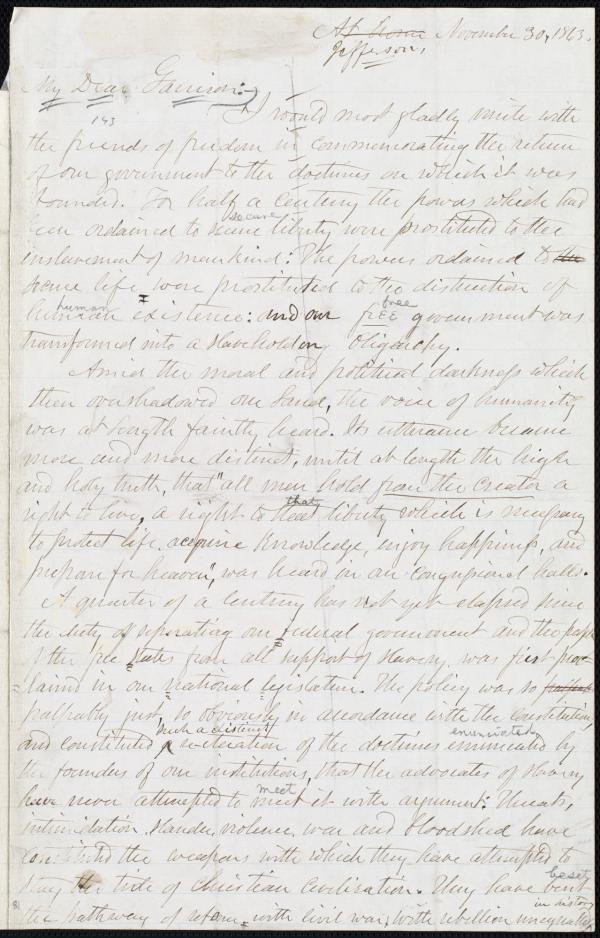 At home November 30, 1863.
Jefferson,
My Dear Garrison:
143
I would most gladly unite with
the friends of freedom in commemorating the return
of our government to the doctrines on which it was
founded. For half a century the powers which had
been ordained to secure secure liberty were prostituted to the
enslavement of mankind: The powers ordained to the
secure life, were prostituted to the distruction of
human human existence: and our free free government was
transformed into a slaveholding oligarchy.
Amid the moral and political darkness which
then overshadowed our land, the voice of humanity
was at length faintly heard. Its utterance became
more and more distinct, until at length the high
and holy truth, that "all men hold from the Creator a
right to live, a right to that liberty which is necessary
to protect life, acquire knowledge, enjoy happiness, and
prepare for heaven", was heard in our congressional halls.
A quarter of a century has not yet elapsed since
the duty of separating our federal government and the people
of the free states from all support of slavery, was first proc-
laimed in our national legislation. The policy was so
palpably just, so obviously in accordance with the constitution,
and constituted such a distinct reiteration of the doctrines enunciated enunciated by
the founders of our institutions, that the advocates of slavery
have never attempted to meet meet it with argument: Threats,
intimidation, slander, violence, war and bloodshed have
constituted the weapons with which they have attempted to
stay the tide of Christian civilization. They have beset
the pathway of reform with civil war, with rebellion unequalled in history